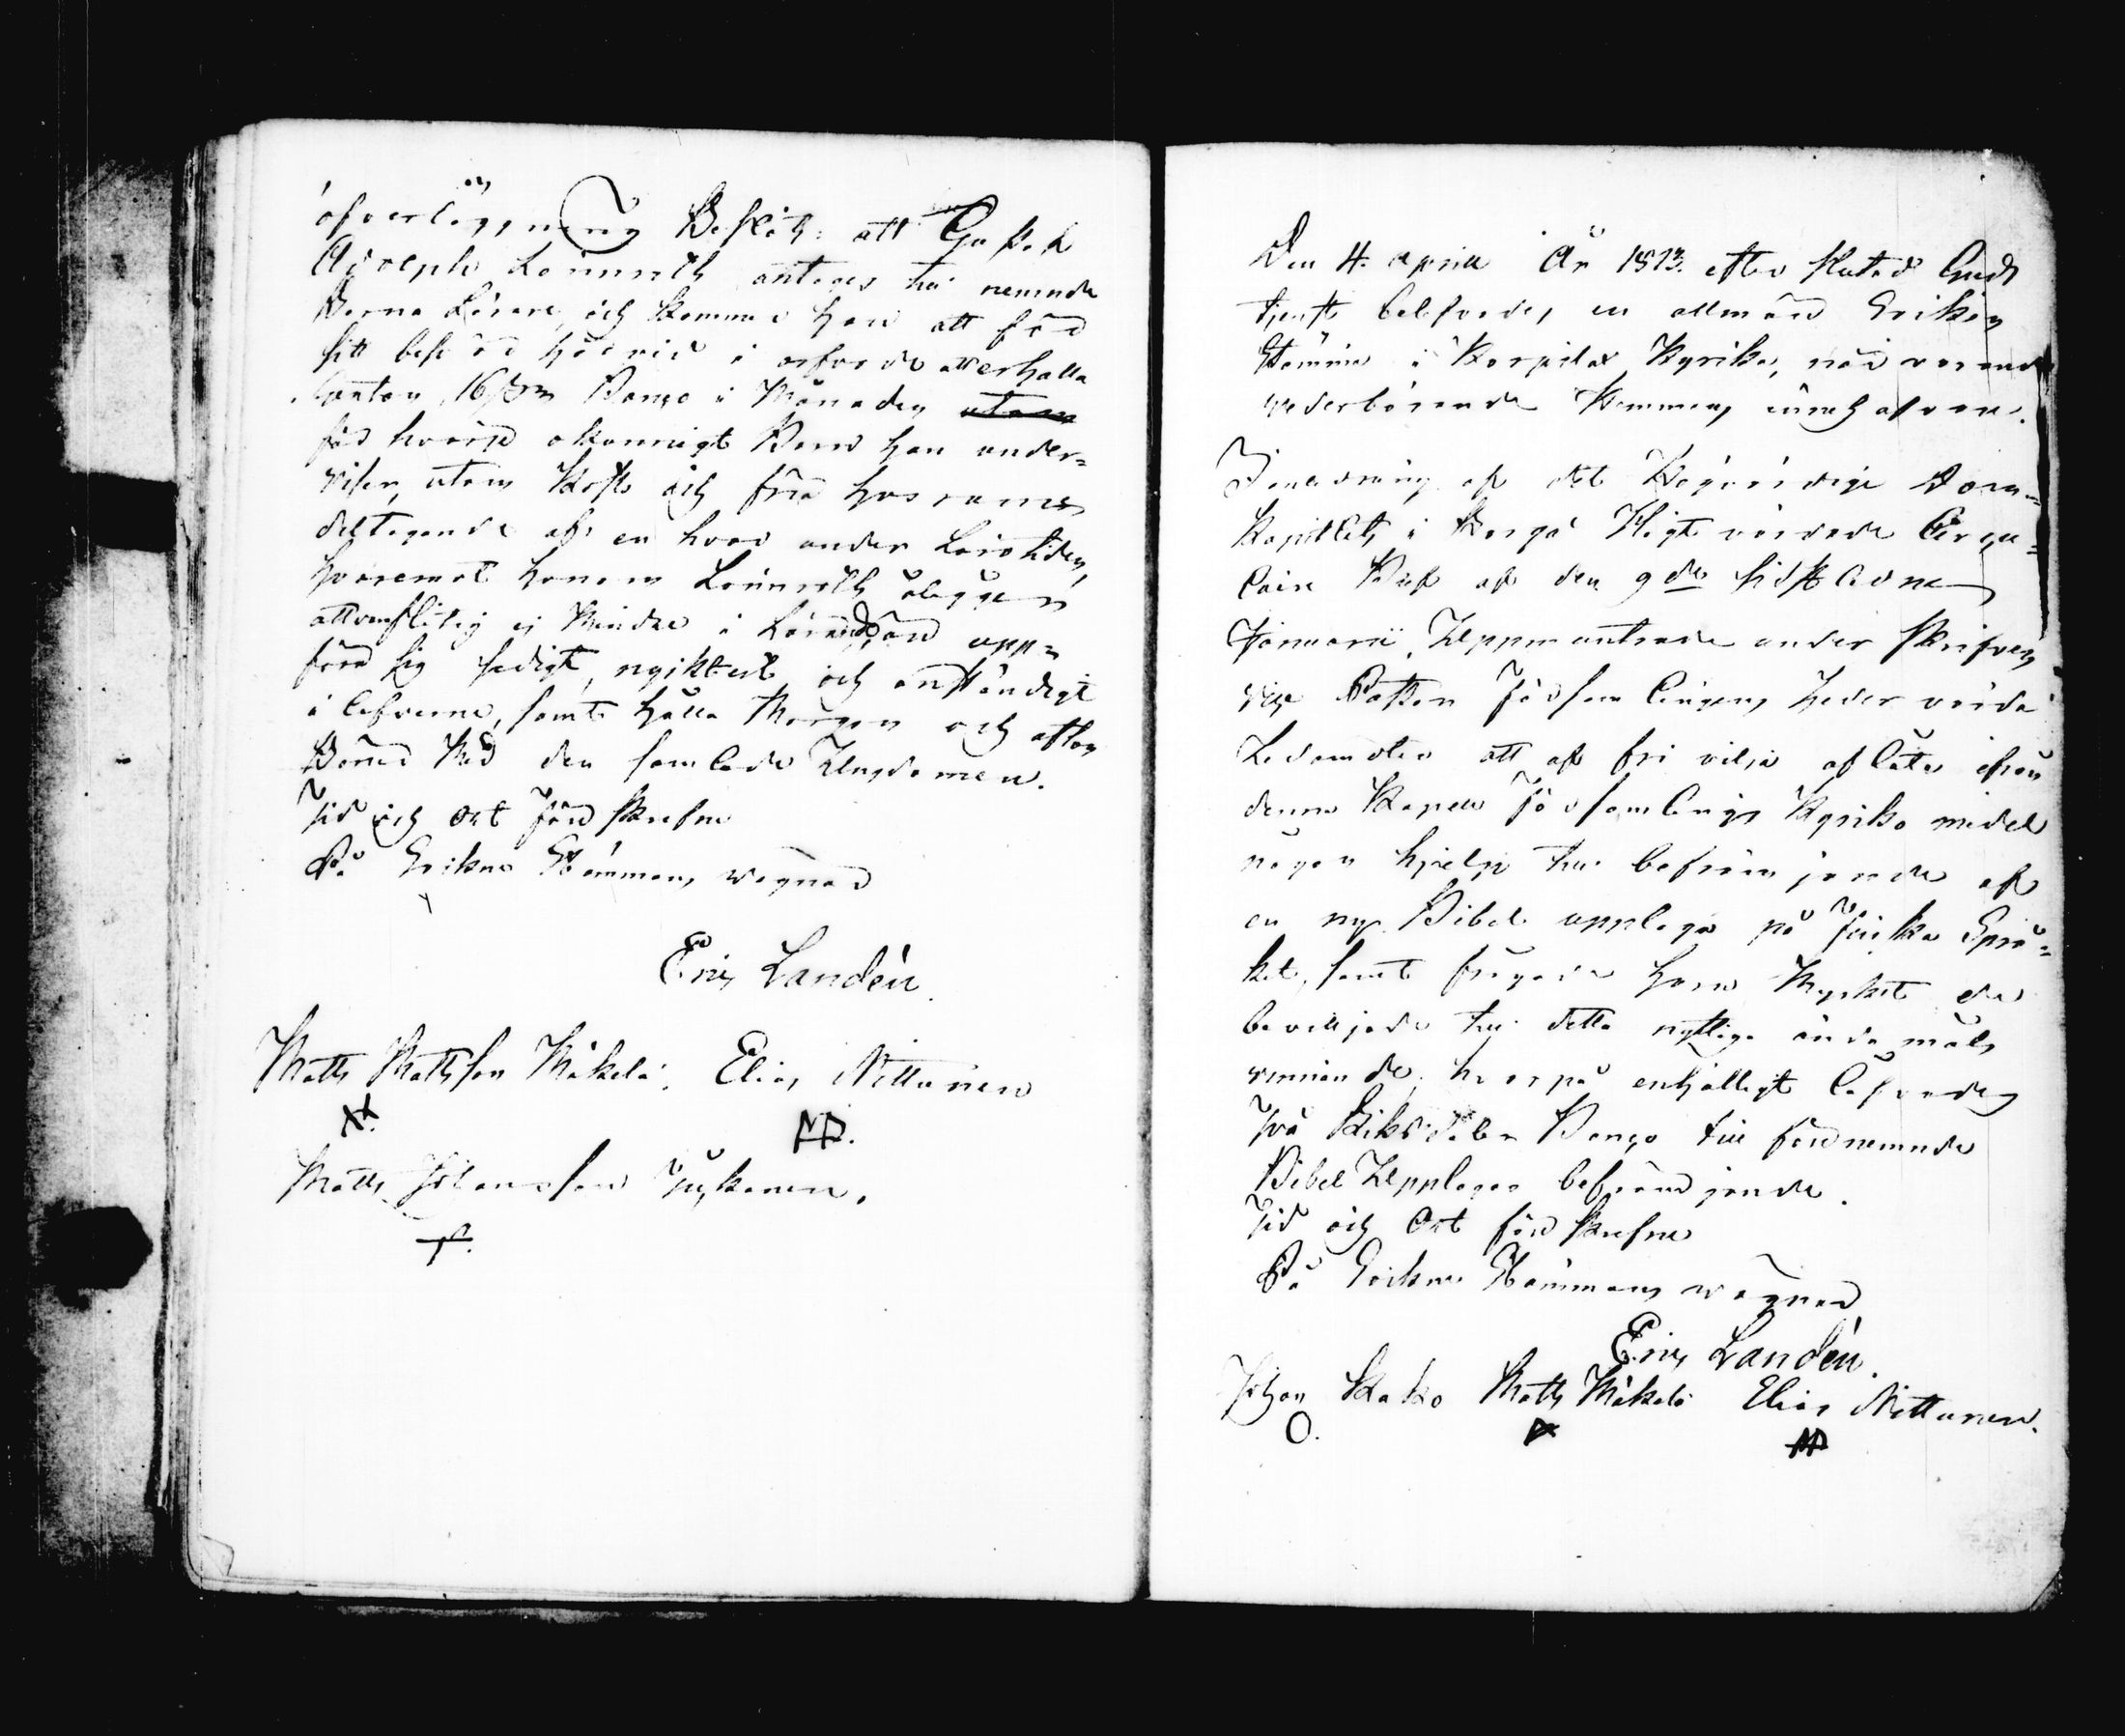 öfverläggning Beslöts: att Gustaf
Adolph Lönnroth antages till nemnde
Barna Lärare, och kommer han att för
sitt besvär härvid i arfvode atterhålla
Sexton 16 s. Banco i Månaden utom
för hvarje okunnigt Barn han under-
viser, utom Kost och fria husrums
deltagande af en hvar under Lärotiden,
hvaremot honom Lönnroth ålägges
att vara flitig ej mindre i Läran än upp-
föra sig sedigt, nyktert och anständigt
i lefverne, samt hålla Morgon och afton
Böner Med den samlade Ungdomen.
Tid och Ort förr skrefne
På Sockne Stämmans vägnar
Eric Landén.
Matts Mattsson Mäkelä. Elias Nittunen
Matts Johansson Tuskanen.
Den 4. april År 1813. efter slutad Guds
tjenst belefvades en allmän Sockne
Stämma i Korpilax Kyrka, när varande
vederbörande Kommo, ernoch afvare.
I anledning af det Högvördige Dom-
Kapitlets i Borgå Högt vördade Circu-
laire Bref af den 9de sidstledne
Januarii, Uppmuntrade under skrifven
desse Kapten Församlingens Heder värda
Ledamöter att af fri vilja aflåta ifrån
denne Kapell Församlings Kyrka medel
någon hjelp till befrämjande af
en ny Bibel upplaga på finska Språ-
ket, samt frågade huru Mycket de
bevilljade till detta nyttiga ända måls
vinnande, hvarpå enhälligt lofvades
Två Riksdaler Banco till förenemnde
Bibel Upplagas befrämjande.
Tid och Ort förr skrefne
På Sockne Stämmans vägnar
Eric Landén.
Johan Kako Matts Mäkelä Elias Nittunen.
O.